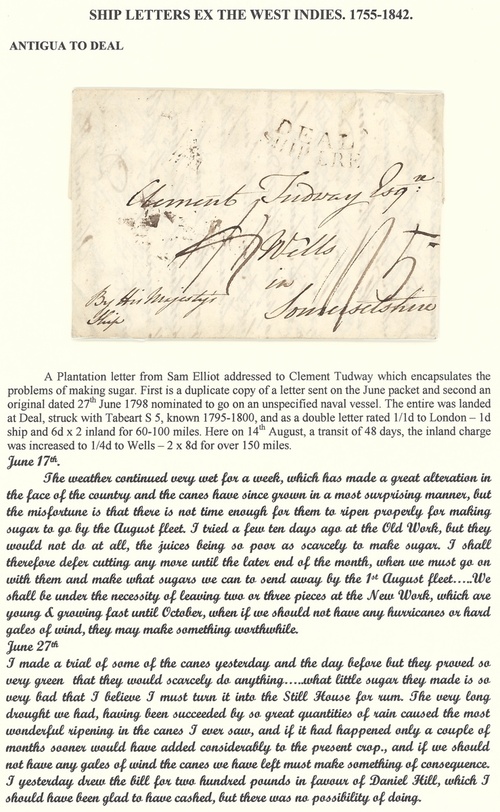 SHIP LETTERS EX THE WEST INDIES. 1755-1842.
ANTIGUA TO DEAL
DEAL
SHIP LRE
Clement Tudway Esqre
Wells
in
Somersetshire
By His Majesty's
Ship
A Plantation letter from Sam Elliot addressed to Clement Tudway which encapsulates the
problems of making sugar. First is a duplicate copy of a letter sent on the June packet and second an
original dated 27th June 1798 nominated to go on an unspecified naval vessel. The entire was landed
at Deal, struck with Tabeart S 5, known 1795-1800, and as a double letter rated 1/1d to London – 1d
ship and 6d x 2 inland for 60-100 miles. Here on 14th August, a transit of 48 days, the inland charge
was increased to 1/4d to Wells – 2 x 8d for over 150 miles.
June 17th.
The weather continued very wet for a week, which has made a great alteration in
the face of the country and the canes have since grown in a most surprising manner, but
the misfortune is that there is not time enough for them to ripen properly for making
sugar to go by the August fleet. I tried a few ten days ago at the Old Work, but they
would not do at all, the juices being so poor as scarcely to make sugar. I shall
therefore defer cutting any more until the later end of the month, when we must go on
with them and make what sugars we can to send away by the 1st August fleet….We
shall be under the necessity of leaving two or three pieces at the New Work, which are
young & growing fast until October, when if we should not have any hurricanes or hard
gales of wind, they may make something worthwhile.
June 27th
I made a trial of some of the canes yesterday and the day before but they proved so
very green that they would scarcely do anything…..what little sugar they made is so
very bad that I believe I must turn it into the Still House for rum. The very long
drought we had, having been succeeded by so great quantities of rain caused the most
wonderful ripening in the canes I ever saw, and if it had happened only a couple of
months sooner would have added considerably to the present crop., and if we should
not have any gales of wind the canes we have left must make something of consequence.
I yesterday drew the bill for two hundred pounds in favour of Daniel Hill, which I
should have been glad to have cashed, but there was no possibility of doing.